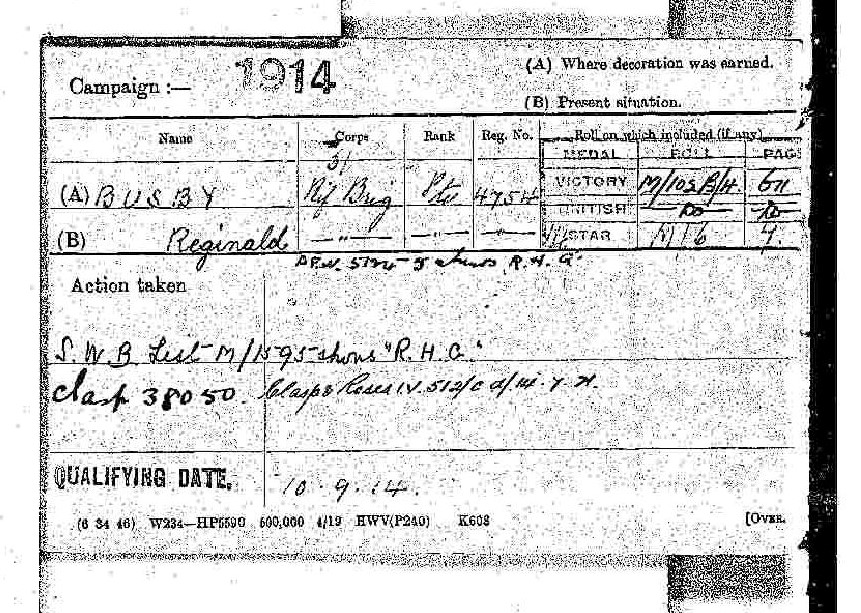 Campaign :— 1914
(A) Where decoration was earned.
(B) Present situation.
Name Corps Rank Reg. No. Roll on which included (if any)
MEDAL ROLL PAGE
3/
(A) BUSBY Rif Brig Pte 4754 VICTORY M/102B/H.
BRITISH Do Do
(B) Reginald — " — — " — — " — STAR
shows R. H. G.
Action taken
S. W. B List M/1595 shows "R. H. G."
Clasp 38050. Clasp & Roses
QUALIFYING DATE, 10. 9. 14.
(6 34 46) W234—HP5590 500,000 4/19 HWV(P240) K608 [OVER.